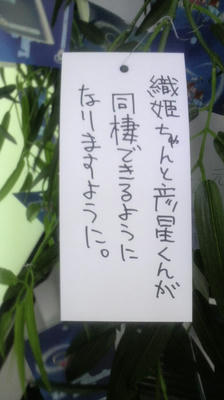 織姫ちゃんと彦星くんが
同棲できるように
なりますように。